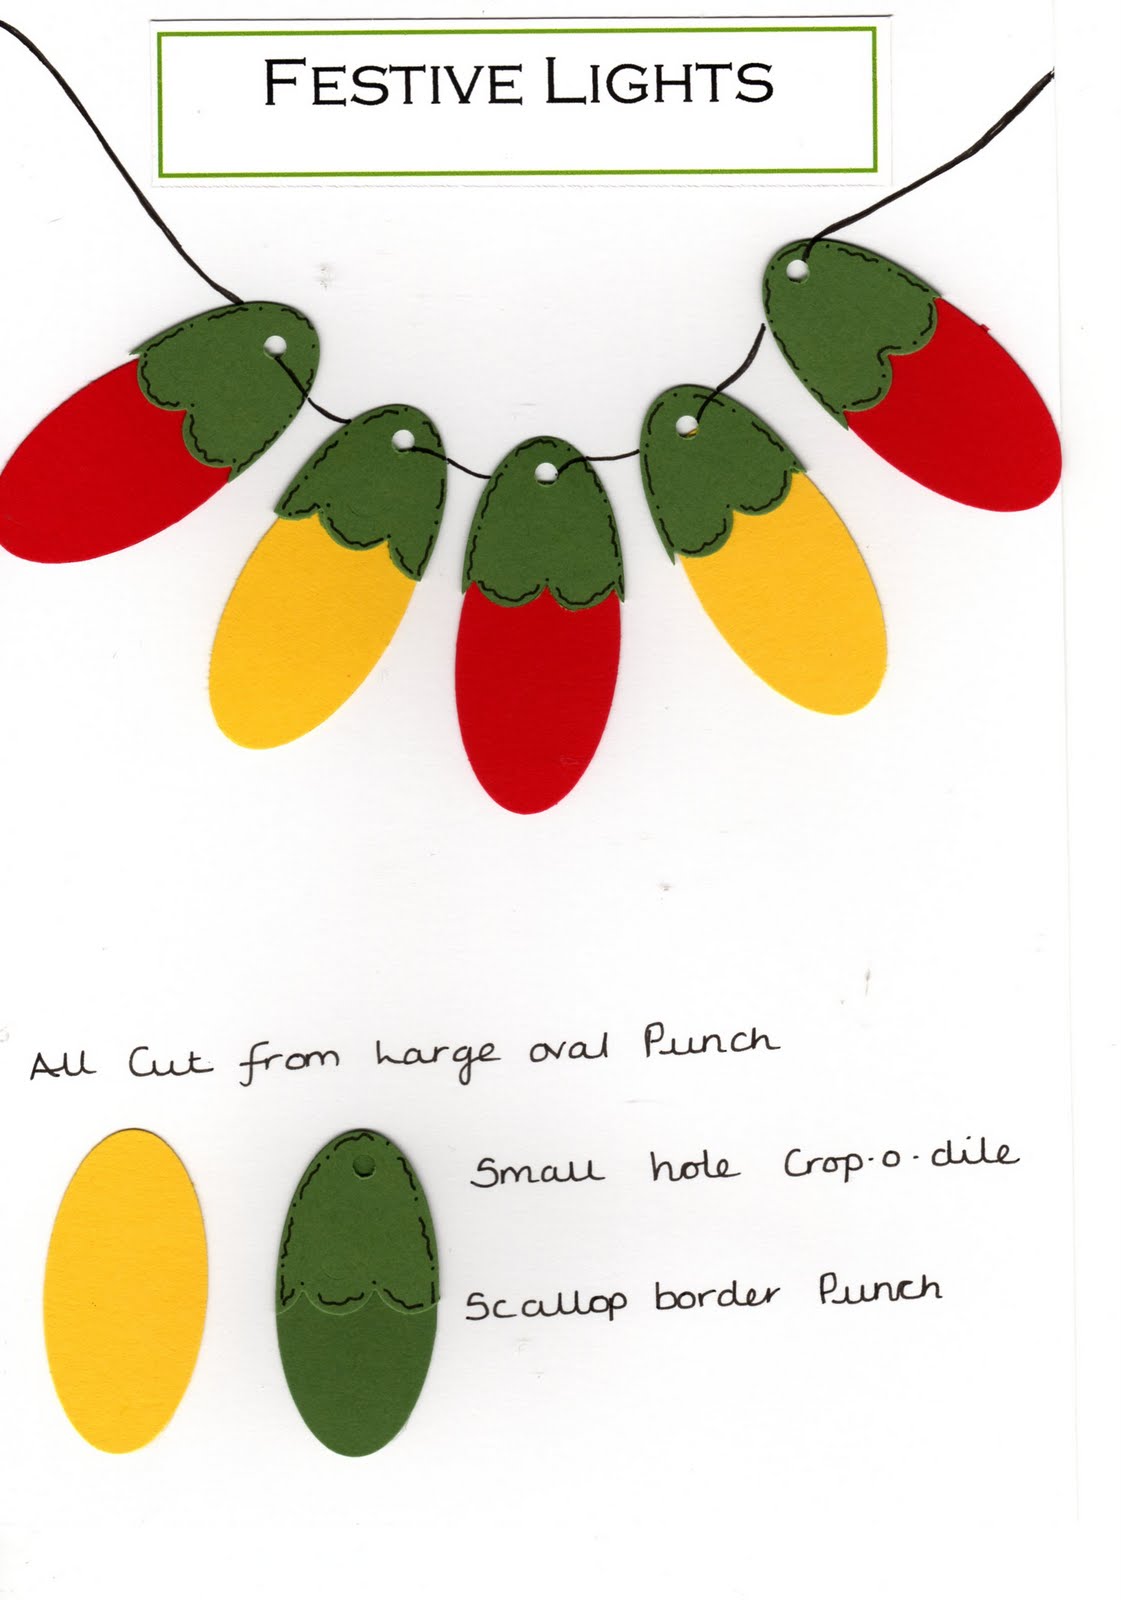 FESTIVE LIGHTS
All Cut from Large oval Punch
Small hole Crop-o-dile
Scallop border Punch